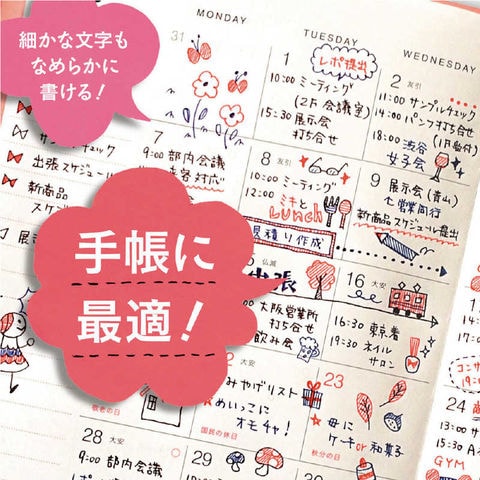 細かな文字も
なめらかに
書ける!
手帳に
最適!
MONDAY
TUESDAY
WEDNESDAY
31
1
レポ提出
10:00 ミーティング
(2F 会議室)
15:30 展示会
打ち合せ
2 友引
11:00 サンプルチェック
14:00 パンフ打ち合せ
(1F 受付)
18:00 渋谷
女子会
チェック
出張スケジュール
新商品
スケジ
展示
7
9:00 部内会議
来客対応
8 友引
10:00 ミーティング
12:00 ミキと
Lunch
見積り作成
9 展示会(青山)
営業同行
新商品スケジュール提出
仏滅
出張
大阪営業所
打ち合せ
飲み会
16 大安
16:30 東京着
19:30 ネイル
サロン
敬老の日
大安
みやげリスト
めいっこに
オモチャ!
国民の休日
23
母に
ケーキor和菓子
秋分の日
コンサ
19:0
24
13:00
15:30
GYM
28 大安
9:00 部内会議
29
30